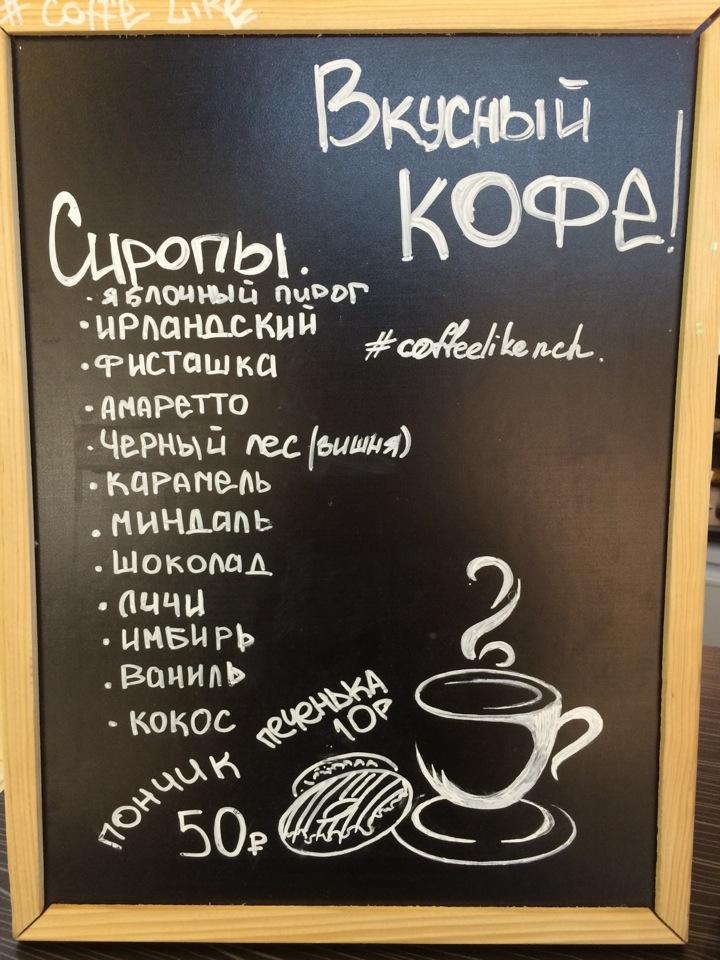 # Coffe Like
Вкусный
кофе!
Сиропы.
· яблочный пирог
· ирландский
· фисташка
· амаретто
· черный лес (вишня)
· карамель
· миндаль
· шоколад
· личи
· имбирь
· ваниль
· кокос
#coffeelikench.
печенька
10р
пончик
50₽